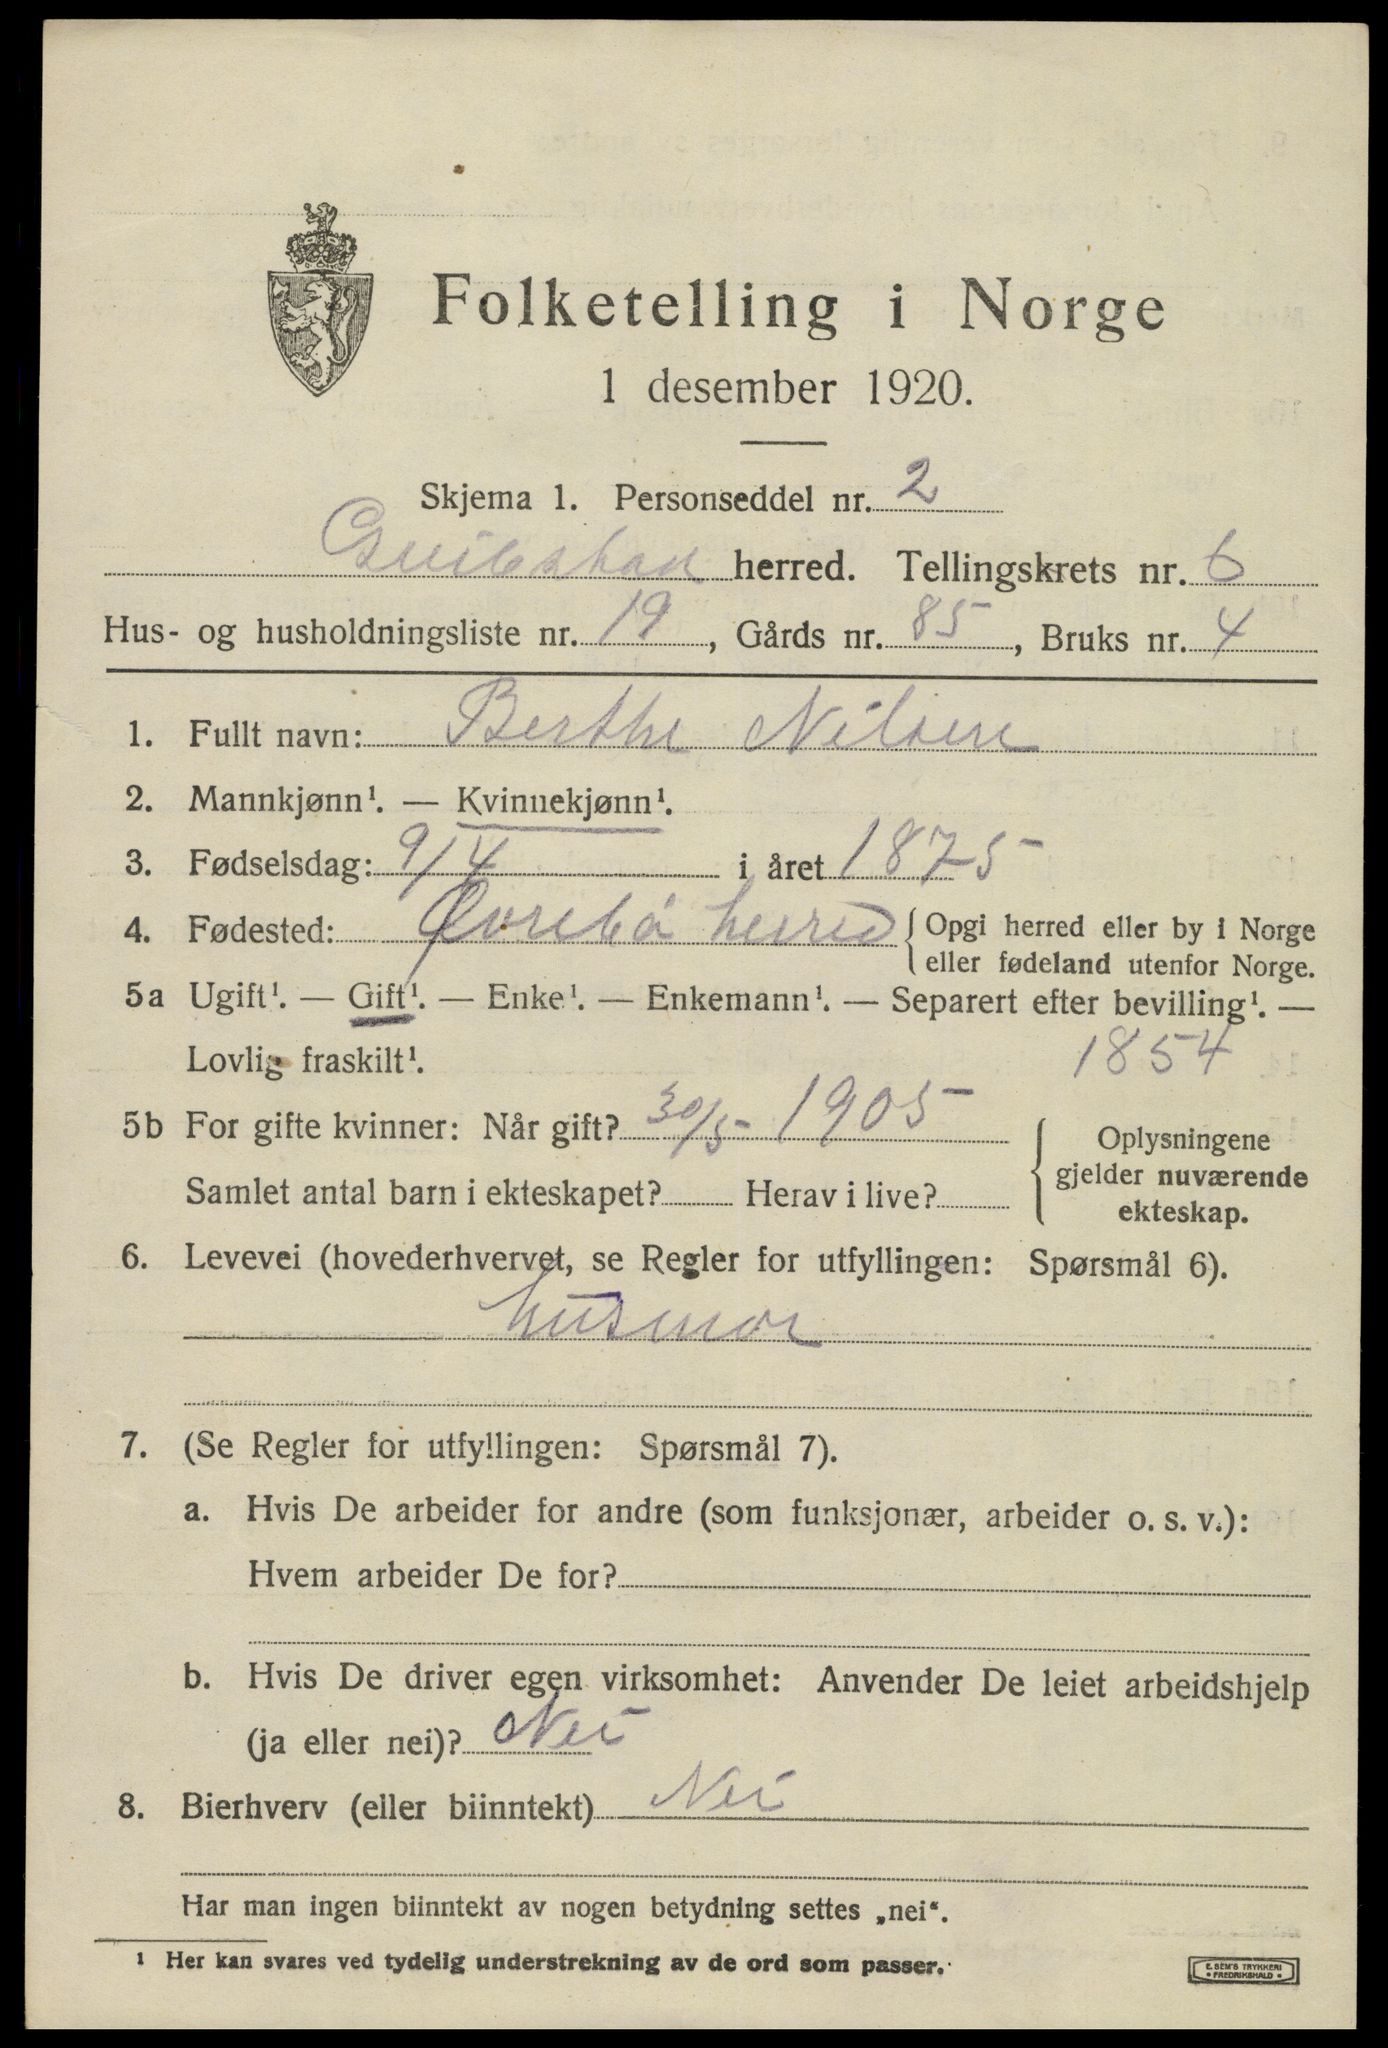 Folketelling i Norge
1 desember 1920.
Skjema 1. Personseddel nr. 2
herred. Tellingskrets nr. 6
Hus- og husholdningsliste nr. 19, Gårds nr. 85, Bruks nr. 4
1. Fullt navn: Berthe Nilsen
2. Mannkjønn¹. — Kvinnekjønn¹.
3. Fødselsdag: 9/4 i året 1875
4. Fødested: Øvrebø herred { Opgi herred eller by i Norge
eller fødeland utenfor Norge.
5a Ugift¹. — Gift¹. — Enke¹. — Enkemann¹. — Separert efter bevilling¹. —
Lovlig fraskilt¹. 1854
5b For gifte kvinner: Når gift? 30/5 1905
Samlet antal barn i ekteskapet? Herav i live?
{ Oplysningene
gjelder nuværende
ekteskap.
6. Levevei (hovederhvervet, se Regler for utfyllingen: Spørsmål 6).
husmor
7. (Se Regler for utfyllingen: Spørsmål 7).
a. Hvis De arbeider for andre (som funksjonær, arbeider o. s. v.):
Hvem arbeider De for?
b. Hvis De driver egen virksomhet: Anvender De leiet arbeidshjelp
(ja eller nei)? Nei
8. Bierhverv (eller biinntekt) Nei
Har man ingen biinntekt av nogen betydning settes „nei“.
¹ Her kan svares ved tydelig understrekning av de ord som passer.
E. SEM'S TRYKKERI
• FREDRIKSHALD •